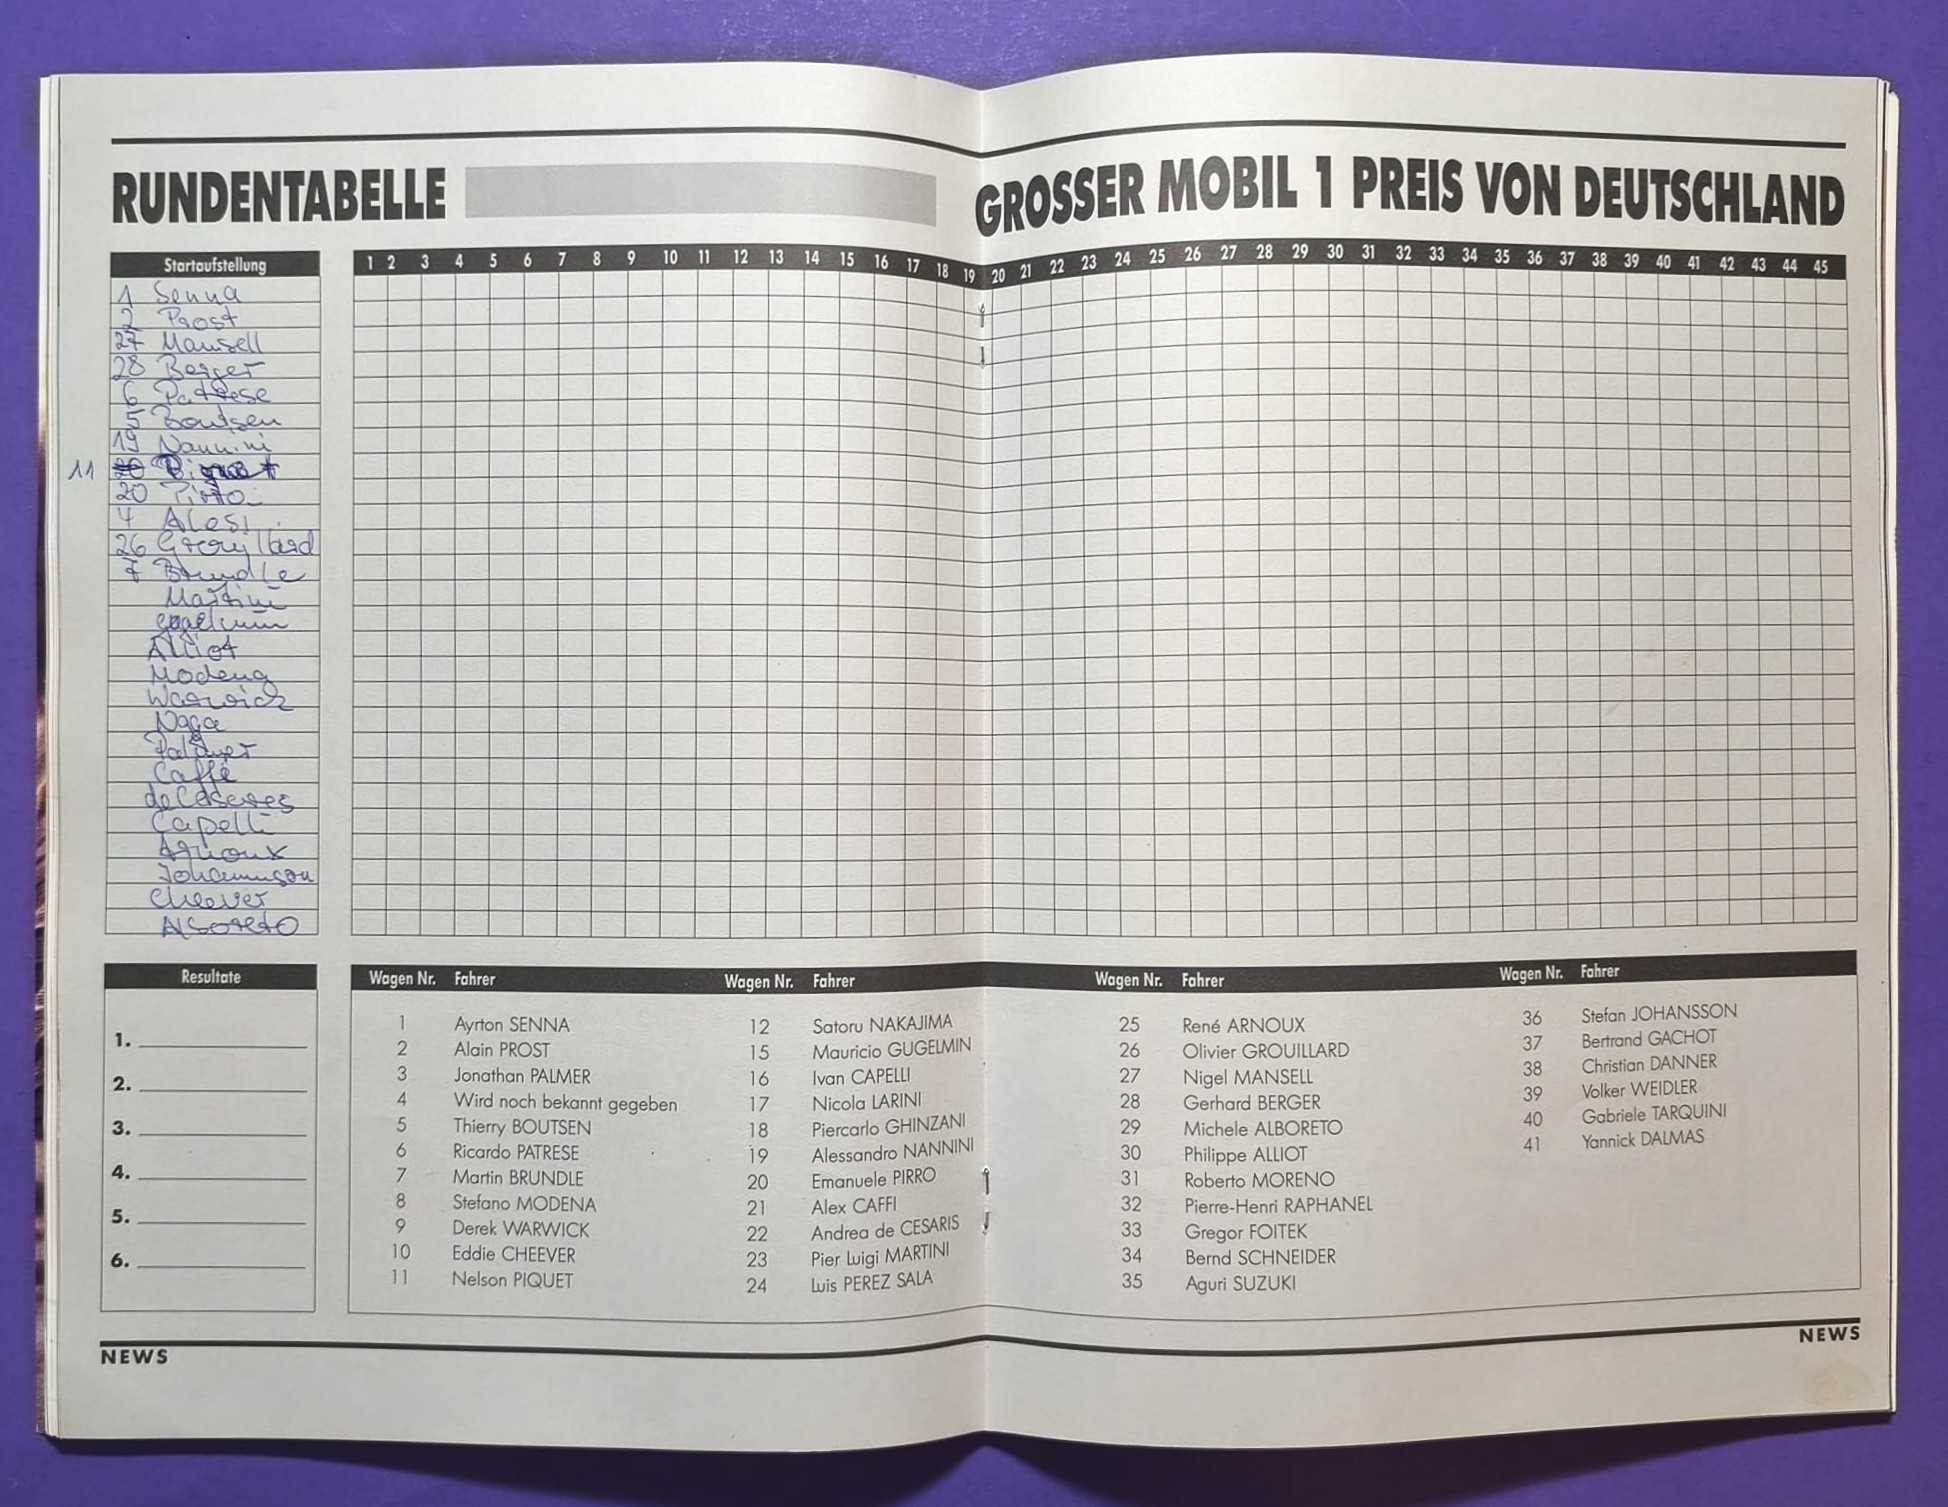 RUNDENTABELLE
GROSSER MOBIL 1 PREIS VON DEUTSCHLAND
Startaufstellung
1 2 3 4 5 6 7 8 9 10 11 12 13 14 15 16 17 18 19 20 21 22 23 24 25 26 27 28 29 30 31 32 33 34 35 36 37 38 39 40 41 42 43 44 45
1 Senna
2 Prost
27 Mansell
28 Berger
6 Patrese
5 Boutsen
19 Nannini
11 20 Piquet
20 Pirro
4 Alesi
26 Grouillard
7 Brundle
Martini
Alliot
Modena
Warwick
Palmer
Caffi
de Ceseres
Capelli
Arnoux
Johannson
Cheever
Alboreto
Resultate
1.
2.
3.
4.
5.
6.
Wagen Nr. Fahrer
1 Ayrton SENNA
2 Alain PROST
3 Jonathan PALMER
4 Wird noch bekannt gegeben
5 Thierry BOUTSEN
6 Ricardo PATRESE
7 Martin BRUNDLE
8 Stefano MODENA
9 Derek WARWICK
10 Eddie CHEEVER
11 Nelson PIQUET
Wagen Nr. Fahrer
12 Satoru NAKAJIMA
15 Mauricio GUGELMIN
16 Ivan CAPELLI
17 Nicola LARINI
18 Piercarlo GHINZANI
19 Alessandro NANNINI
20 Emanuele PIRRO
21 Alex CAFFI
22 Andrea de CESARIS
23 Pier Luigi MARTINI
24 Luis PEREZ SALA
Wagen Nr. Fahrer
25 René ARNOUX
26 Olivier GROUILLARD
27 Nigel MANSELL
28 Gerhard BERGER
29 Michele ALBORETO
30 Philippe ALLIOT
31 Roberto MORENO
32 Pierre-Henri RAPHANEL
33 Gregor FOITEK
34 Bernd SCHNEIDER
35 Aguri SUZUKI
Wagen Nr. Fahrer
36 Stefan JOHANSSON
37 Bertrand GACHOT
38 Christian DANNER
39 Volker WEIDLER
40 Gabriele TARQUINI
41 Yannick DALMAS
NEWS
NEWS